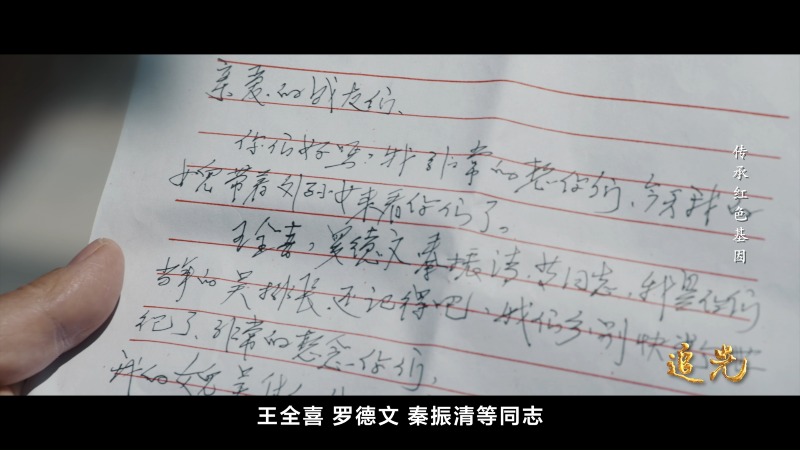 亲爱的战友们、
你们好吗？我非常的想你们、今天我的
女儿带着外孙女来看你们了。
王全喜，罗德文 秦振清、等同志，我是你们
当年的吴排长、还记得吧、我们分别快
纪了、非常的想念你们，
我的女儿吴
传承红色基因
追光
王全喜 罗德文 秦振清等同志